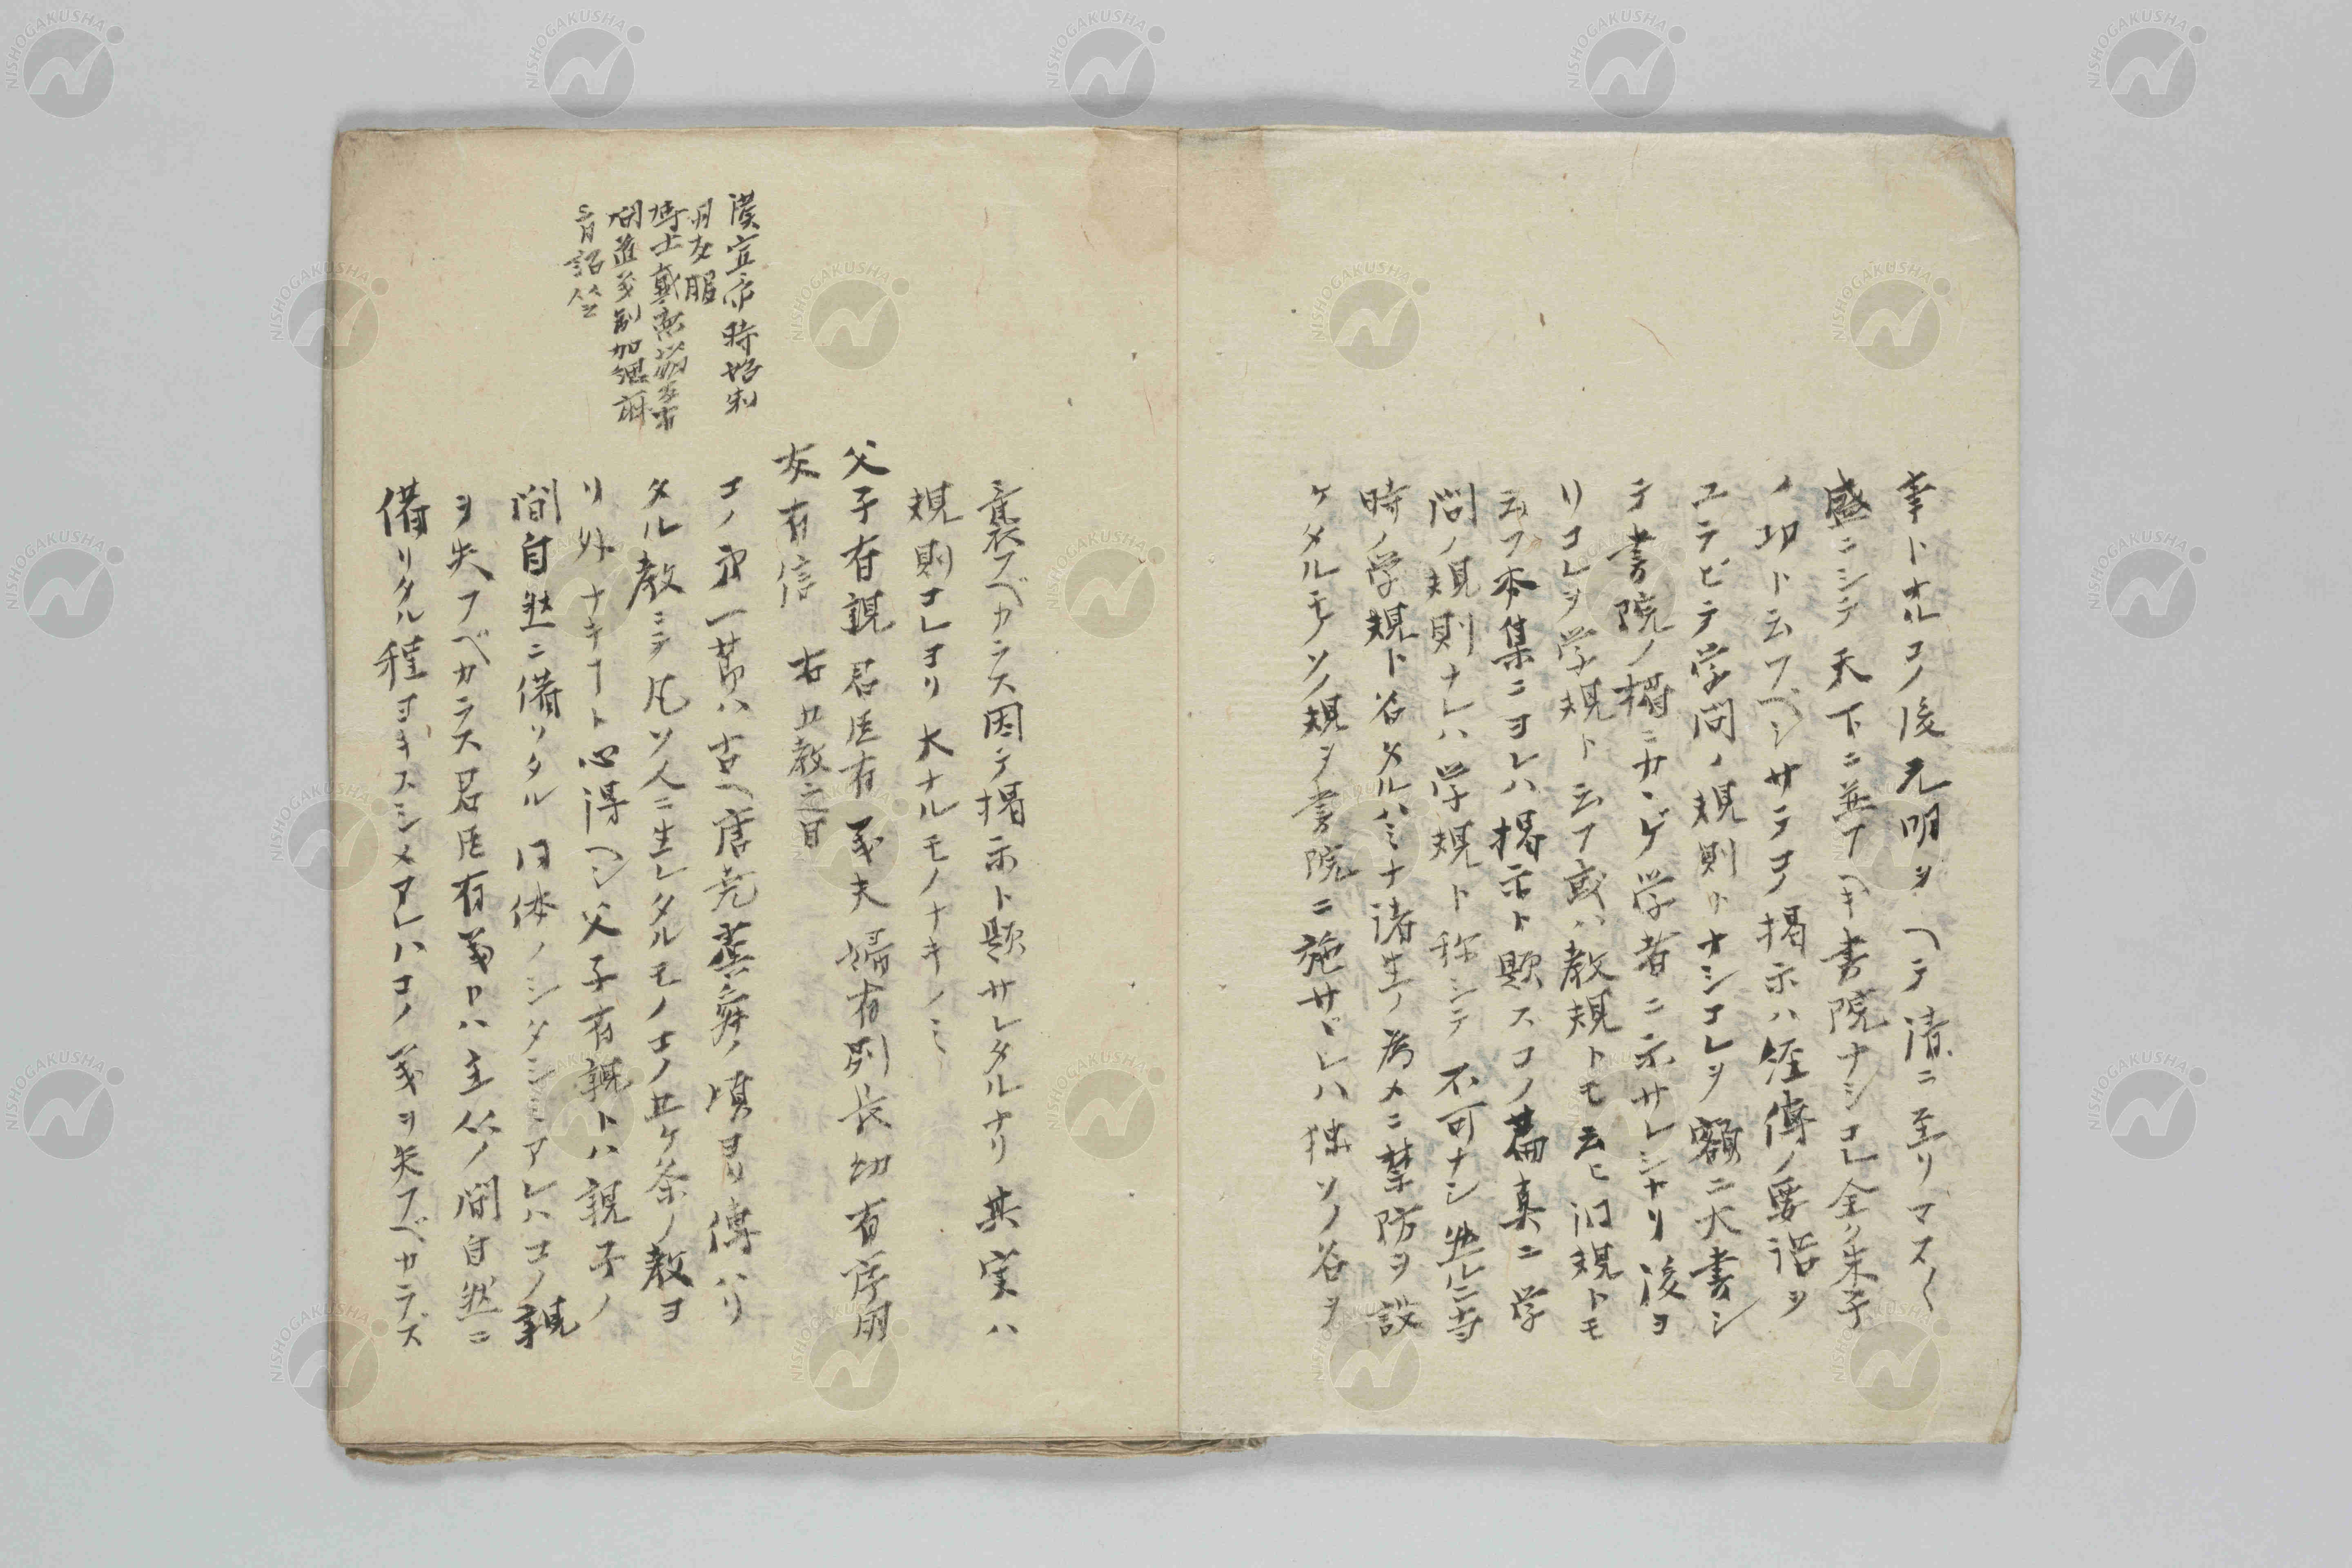 幸トナルコノ後元明ヲヘテ清ニ至リマス〱
盛ニシテ天下ニ並フヘキ書院ナシコレ全ク朱子
ノ功ト云フベシサテコノ掲示ハ経傳ノ要語ヲ
ヱラビテ学問ノ規則トナシコレヲ額ニ大書シ
テ書院ノ楣ニカヽゲ学者ニ示サレシヤリ後ヨ
リコレヲ学規ト云フ或ハ教規トモ云ヒ洞規トモ
云フ本集ニヨレハ掲示ト題スコノ篇真ニ学
問ノ規則ナレハ学規ト称シテ不可ナシ然ルニ当
時ノ学規ト名タルハミナ諸生ノ為メニ禁防ヲ設
ケタルモノソノ規ヲ書院ニ施サヾレハ独ソノ名ヲ
襲フベカラス因テ掲示ト題サレタルナリ其実ハ
規則コレヨリ大ナルモノナキノミ
父子有親君臣有義夫婦有別長幼有序朋
友有信 右五教之目
コノ第一節ハ古ヘ唐尭虞舜ノ頃ヨリ傳ハリ
タル教ニテ凡ソ人ニ生レタルモノコノ五ケ条ノ教ヨ
リ外ナキヿト心得ヘシ父子有親トハ親子ノ
間自然ニ備リタル一体ノシタシミアレハコノ親
ヲ失フベカラス君臣有義トハ主从ノ間自然ニ
備リタル程ヨキスシメアレハコノ義ヲ失フベカラズ
漢宣帝時始制
朋友服
博士戴
問道義